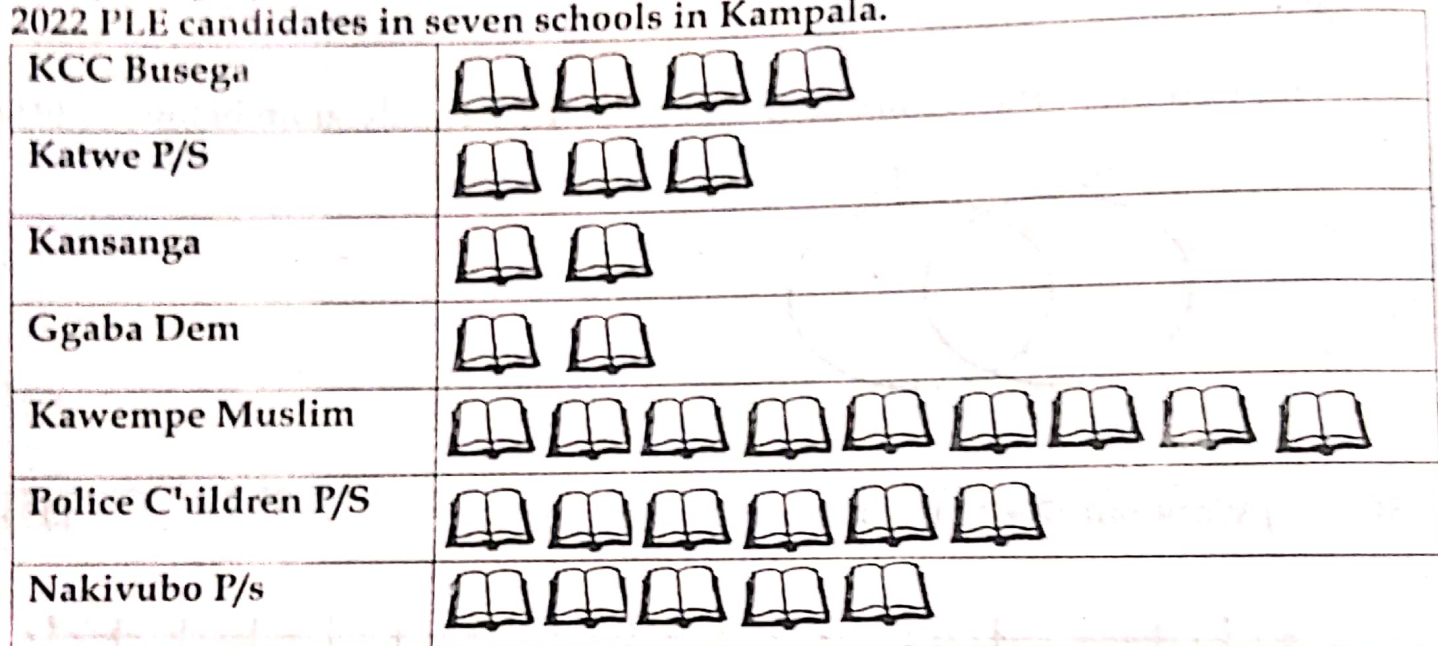 2022 PLE candidates in seven schools in Kampala.
KCC Busega
Katwe P/S
Kansanga
Ggaba Dem
Kawempe Muslim
Police C'ildren P/S
Nakivubo P/s